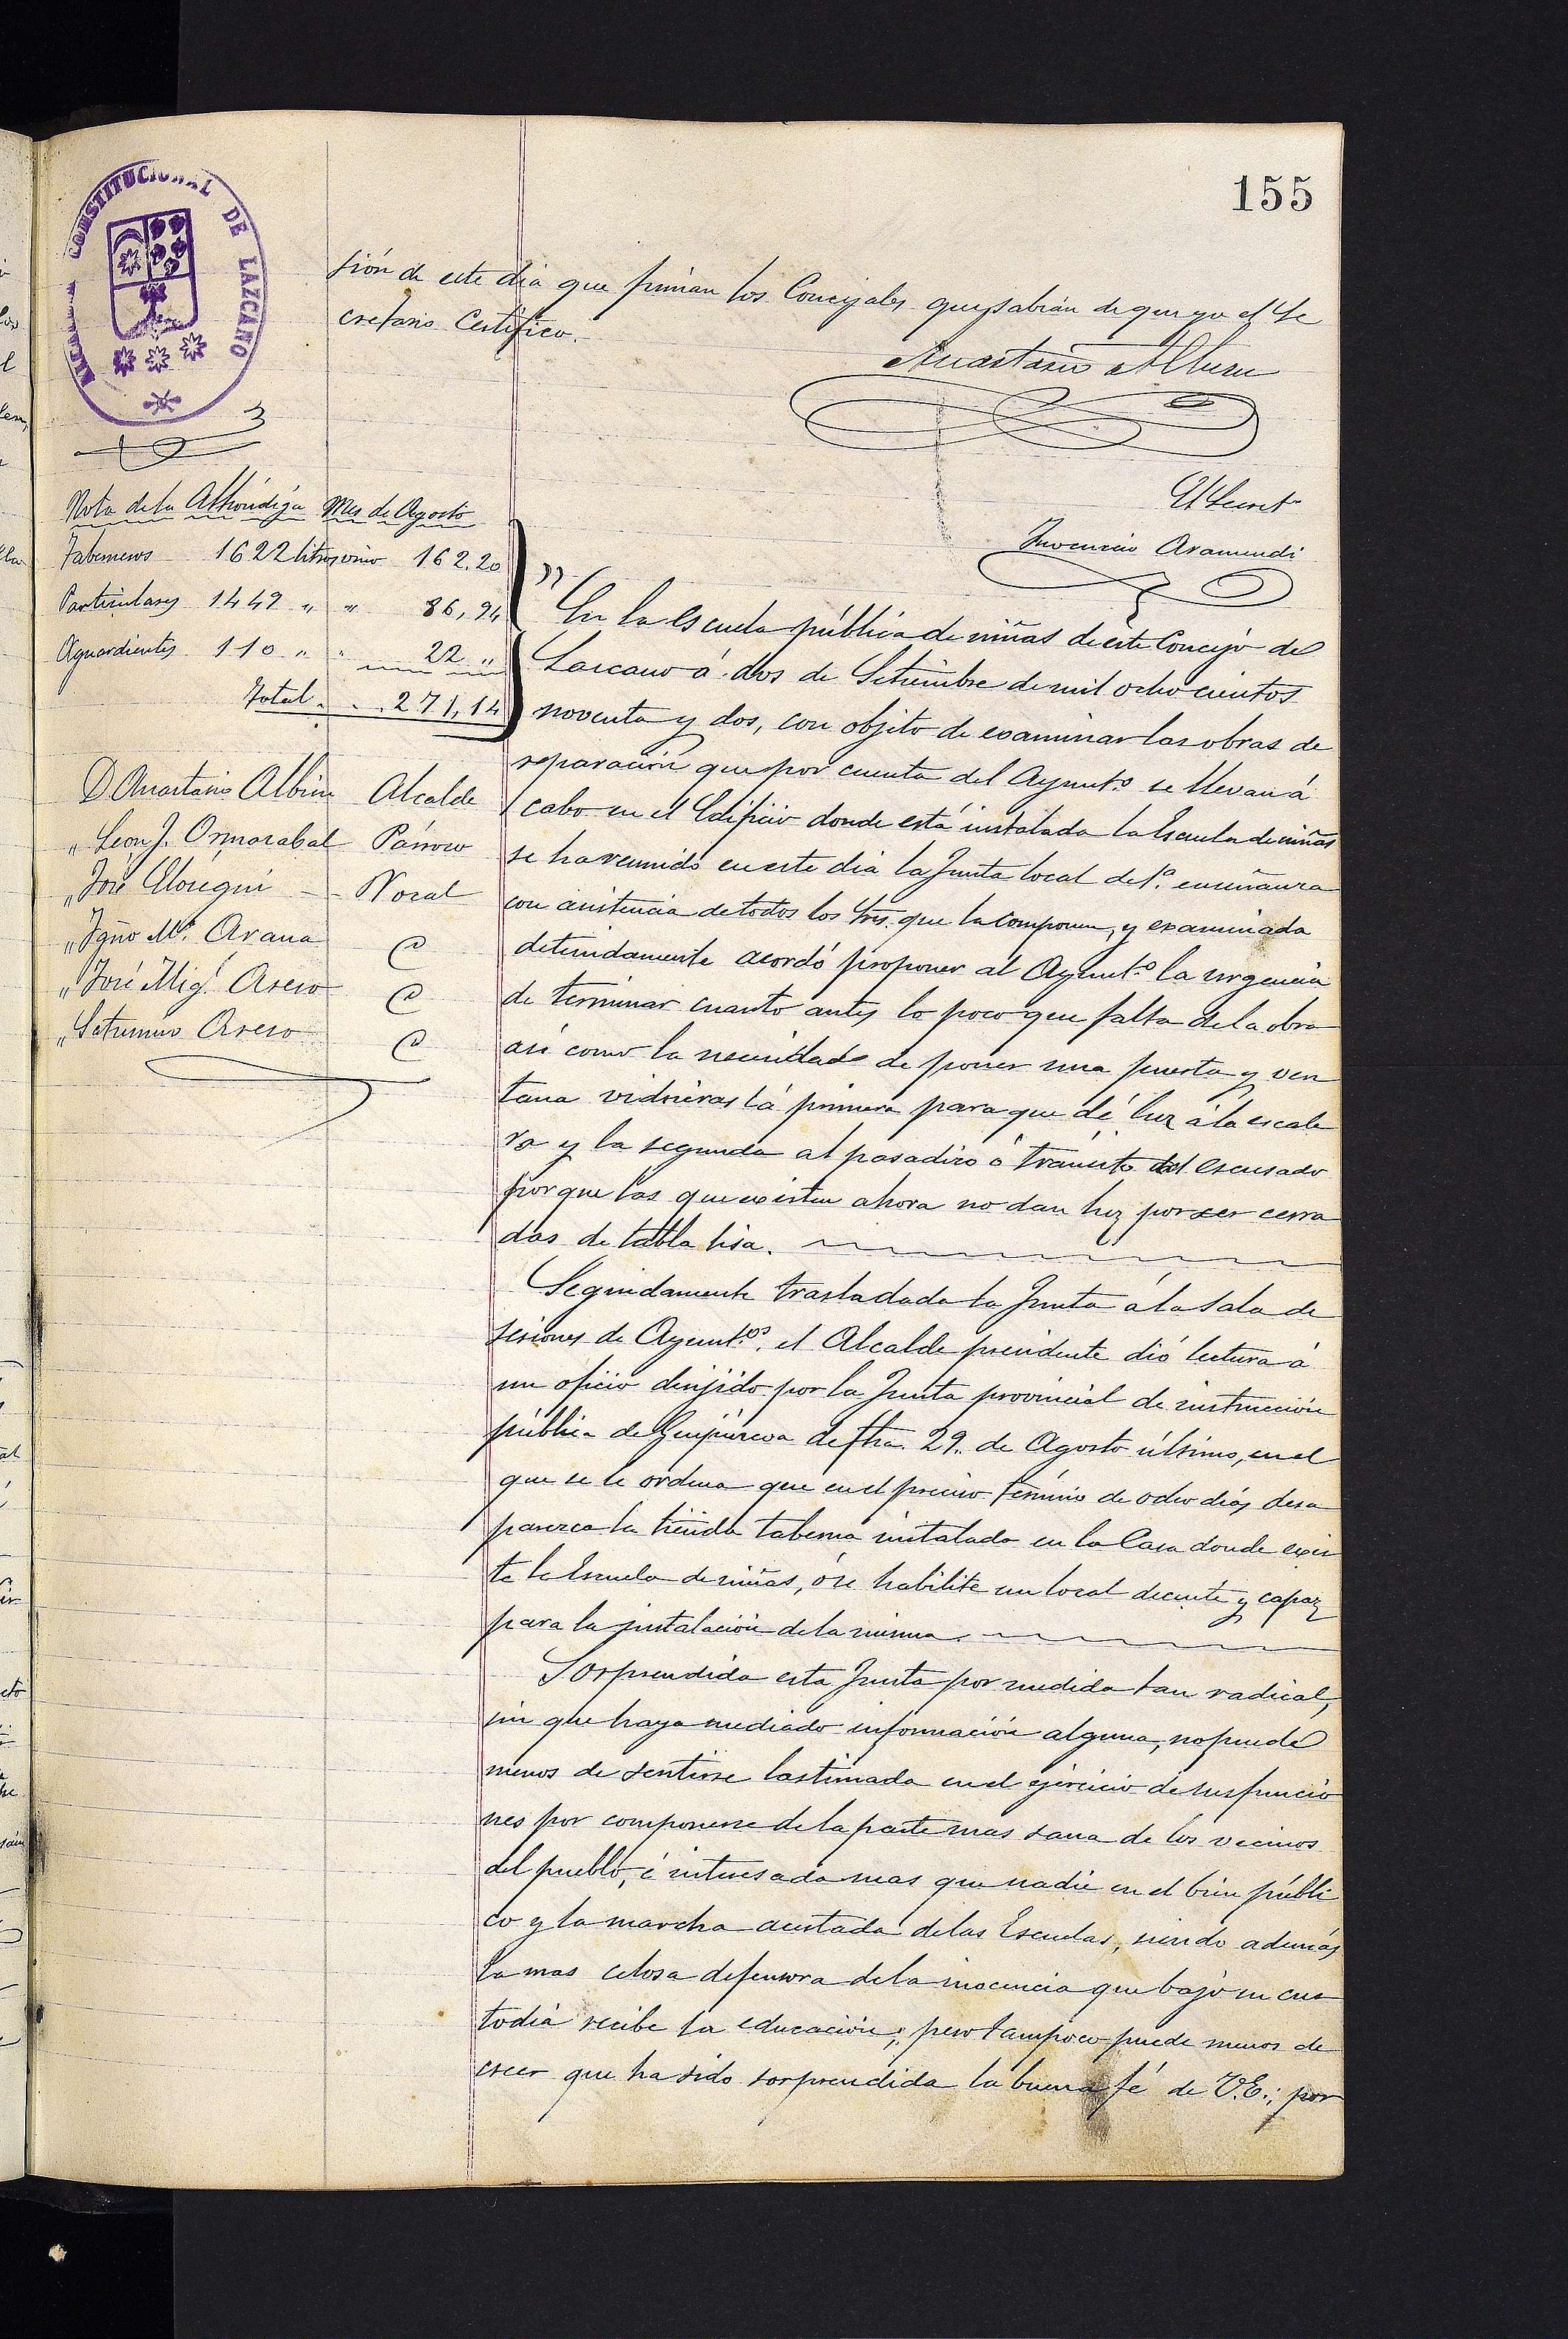 155
CONSTITUCIONAL DE LAZCANO
sión de este dia que firman los Concejales que sabián de que yo el Se
cretario Certifico.
Anastasio Albisu
El Secret.º
Inocencio Aramendi
Nota de la Alhóndiga Mes de Agosto
Taberneros 1622 litros vino 162,20
Particulares 1449 " " 86,94
Aguardientes 110 " " 22 "
Total . . . 271,14
D. Anastasio Albisu Alcalde
" Leon J. Ormazabal Párroco
" José Elosegui Vocal
" Ygno. M.ª Arana
" José Mig.l Aseso
" Saturnino Aseso
En la escuela pública de niñas de este Concejo de
Lazcano á dos de Setiembre de mil ochocientos
noventa y dos, con objeto de examinar las obras de
reparación que por cuenta del Ayunt.º se llevan á
cabo en el Edificio donde está instalada la Escuela de niñas
se ha reunido en este dia la Junta local de 1.ª enseñanza
con asistencia de todos los Sres. que la componen, y examinada
detenidamente acordó proponer al Ayunt.º la urgencia
de terminar cuanto antes lo poco que falta de la obra
asi como la necesidad de poner una puerta y ven
tana vidrieras lá primera para que dé luz á la escale
ra y la segunda al pasadizo ó tránsito del escusado
porque las que existen ahora no dan luz por ser cerra
das de tabla lisa.
Seguidamente trasladada la Junta á la Sala de
sesiones de Ayunt.os, el Alcalde presidente dió lectura á
un oficio dirijido por la Junta provincial de instrucción
pública de Guipúzcoa de fha. 29. de Agosto último, en el
que se le ordena que en el preciso término de ocho dias desa
parezca la tienda taberna instalada en la Casa donde exis
te la Escuela de niñas, ó se habilite un local decente y capaz
para la instalación de la misma.
Sorprendida esta Junta por medida tan radical,
sin que haya mediado información alguna, no puede
menos de sentirse lastimada en el ejercicio de sus funcio
nes por componerse de la parte mas sana de los vecinos
del pueblo, é interesada mas que nadie en el bien públi
co y la marcha acertada de las Escuelas, siendo además
la mas celosa defensora de la inocencia que bajo su cus
todia recibe la educación; pero tampoco puede menos de
creer que ha sido sorprendida la buena fé de V.E.; por